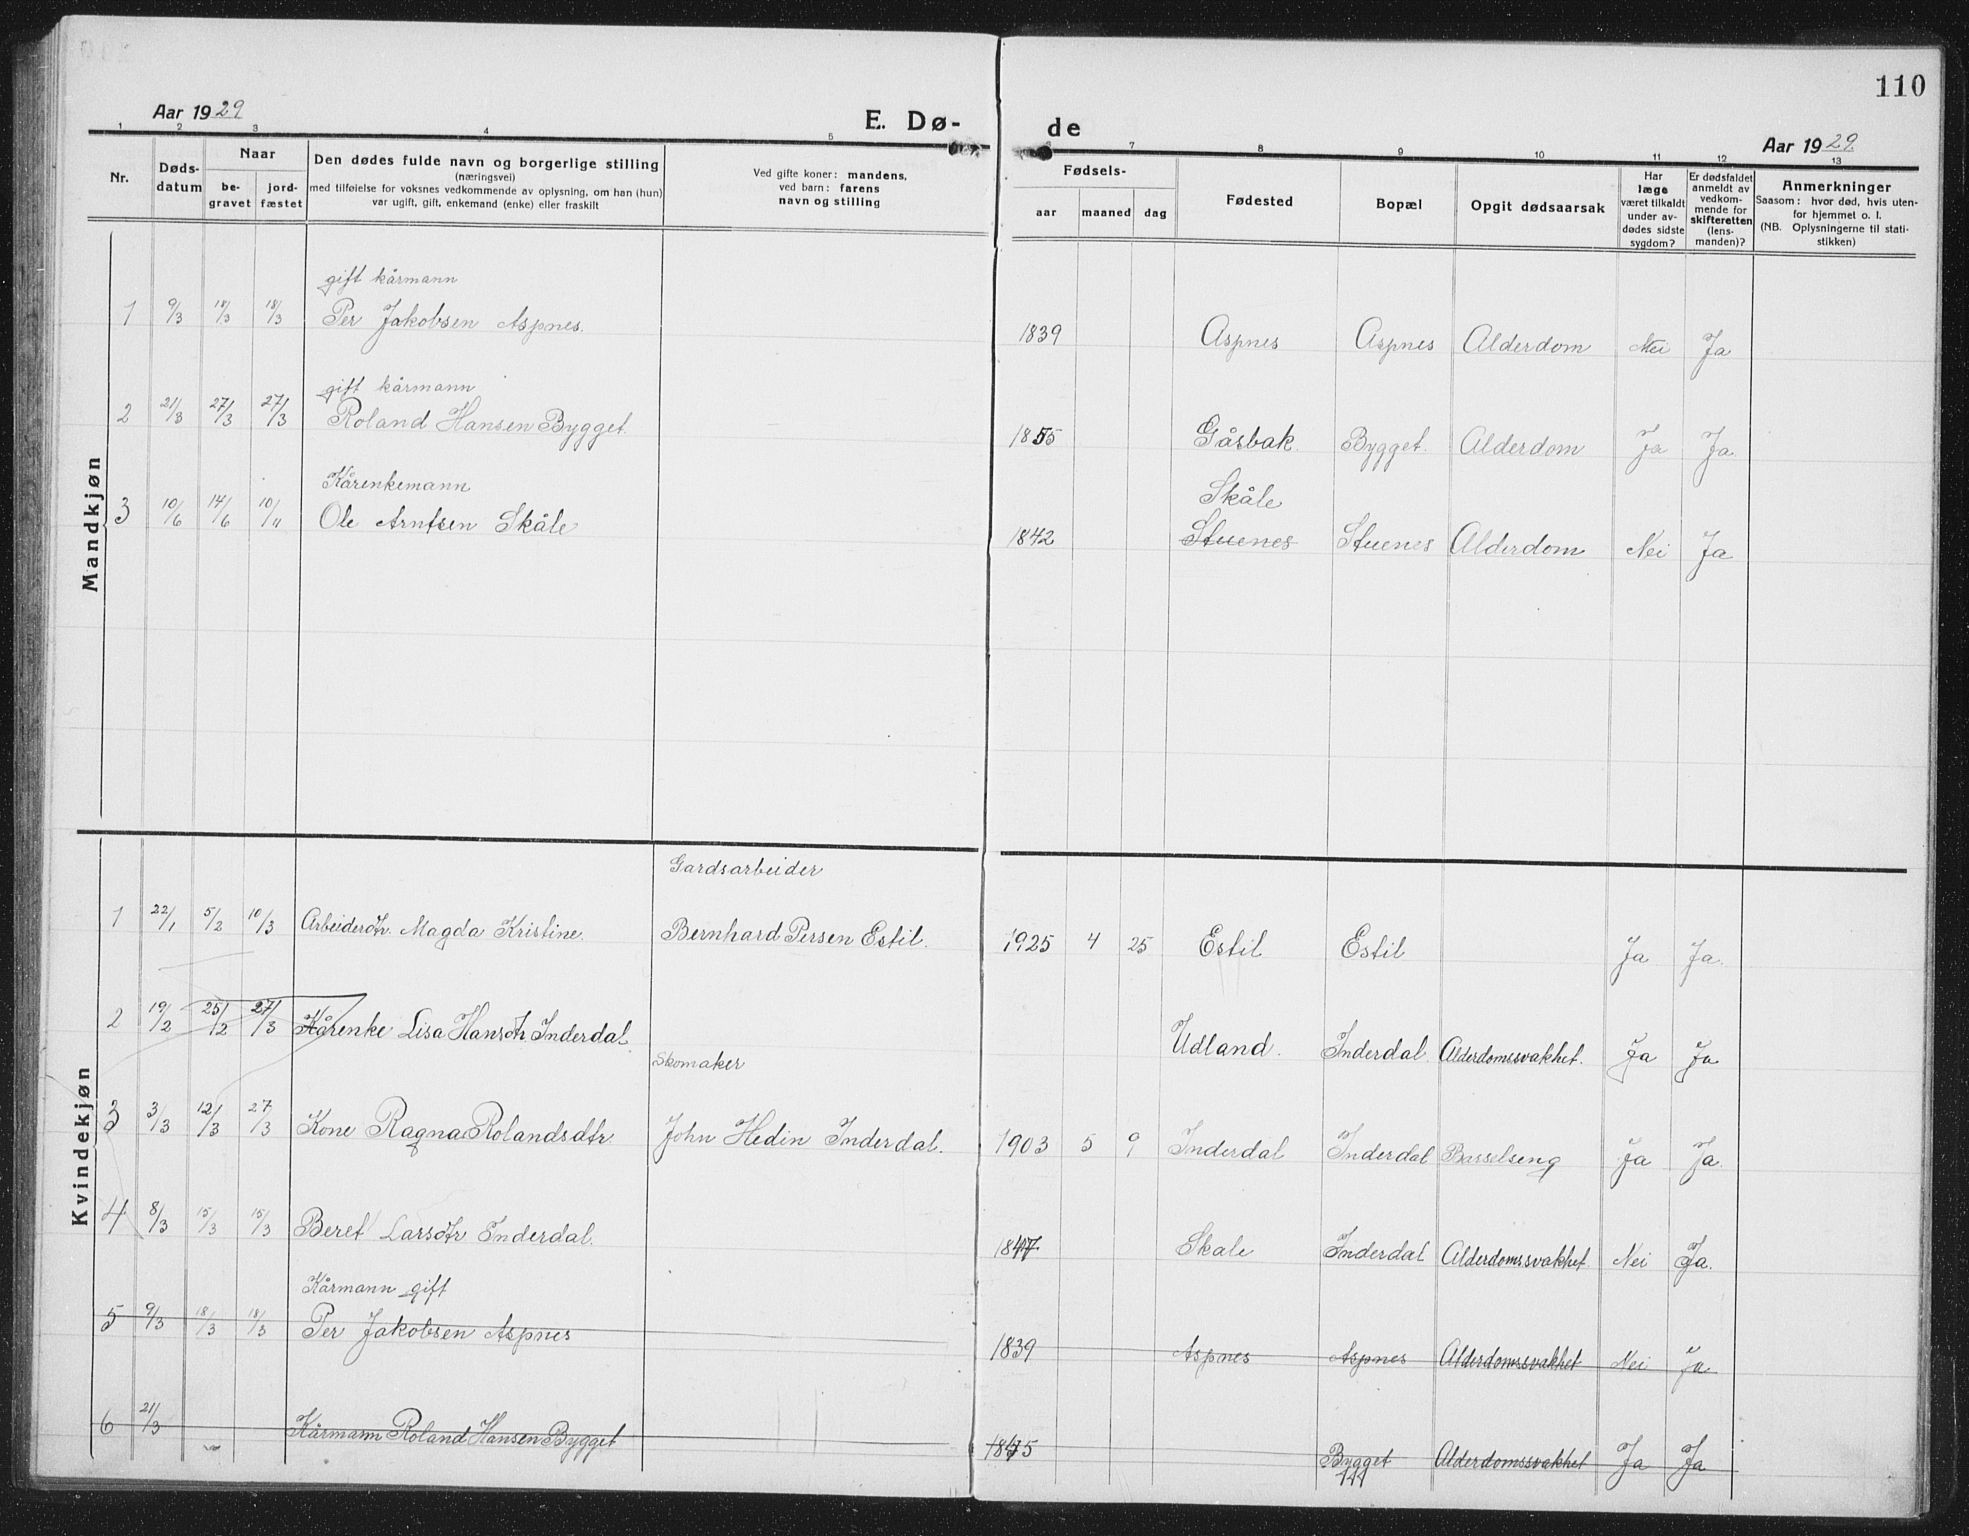 110
Aar 1929
E. Dø-
de
Aar 1929.
1 2 3 4 5 7 8 9 10 11 12 13
Nr.
Døds-
datum
Naar
be-
gravet
jord-
fæstet
Den dødes fulde navn og borgerlige stilling
(næringsvei)
med tilføielse for voksnes vedkommende av oplysning, om han (hun)
var ugift, gift, enkemand (enke) eller fraskilt
Ved gifte koner: mandens,
ved barn: farens
navn og stilling
Fødsels-
aar maaned dag
Fødested
Bopæl
Opgit dødsaarsak
Har
læge
været tilkaldt
under av-
dødes sidste
sygdom?
Er dødsfaldet
anmeldt av
vedkom-
mende for
skifteretten
(lens-
manden)?
Anmerkninger
Saasom: hvor død, hvis uten-
for hjemmet o. l.
(NB. Oplysningerne til stati-
stikken)
Mandkjøn
gift kårmann
1 9/3 18/3 18/3 Per Jakobsen Aspnes. 1839 Aspnes Aspnes Alderdom Nei Ja
gift kårmann
2 21/3 27/3 27/3 Roland Hansen Bygget. 1855 Gåsbak. Bygget. Alderdom Ja Ja
Kårenkemann Skåle
3 10/6 14/6 10/11 Ole Arntsen Skåle 1842 Stuenes Stuenes Alderdom Nei Ja
Kvindekjøn
Gardsarbeider
1 22/1 5/2 10/3 Arbeiderdtr. Magda Kristine. Bernhard Persen Estil. 1925 4 25 Estil Estil Ja Ja.
2 19/2 25/2 27/3 Kårenke Lisa Hansdtr. Inderdal. Udland. Inderdal. Alderdomssvakhet. Ja Ja
Skomaker
3 3/3 12/3 27/3 Kone Ragna Rolandsdtr John Hedin Inderdal. 1903 5 9 Inderdal Inderdal Basselseng Ja Ja.
4 8/3 15/3 15/3 Beret Larsdtr Inderdal. 1847 Skale Inderdal Alderdomssvakhet Nei Ja.
Kårmann gift
5 9/3 18/3 18/3 Per Jakobsen Aspnes 1839 Aspnes Aspnes Alderdomssvakhet Nei Ja
6 21/3 Kårmann Roland Hansen Bygget Bygget Alderdomssvakhet Ja Ja